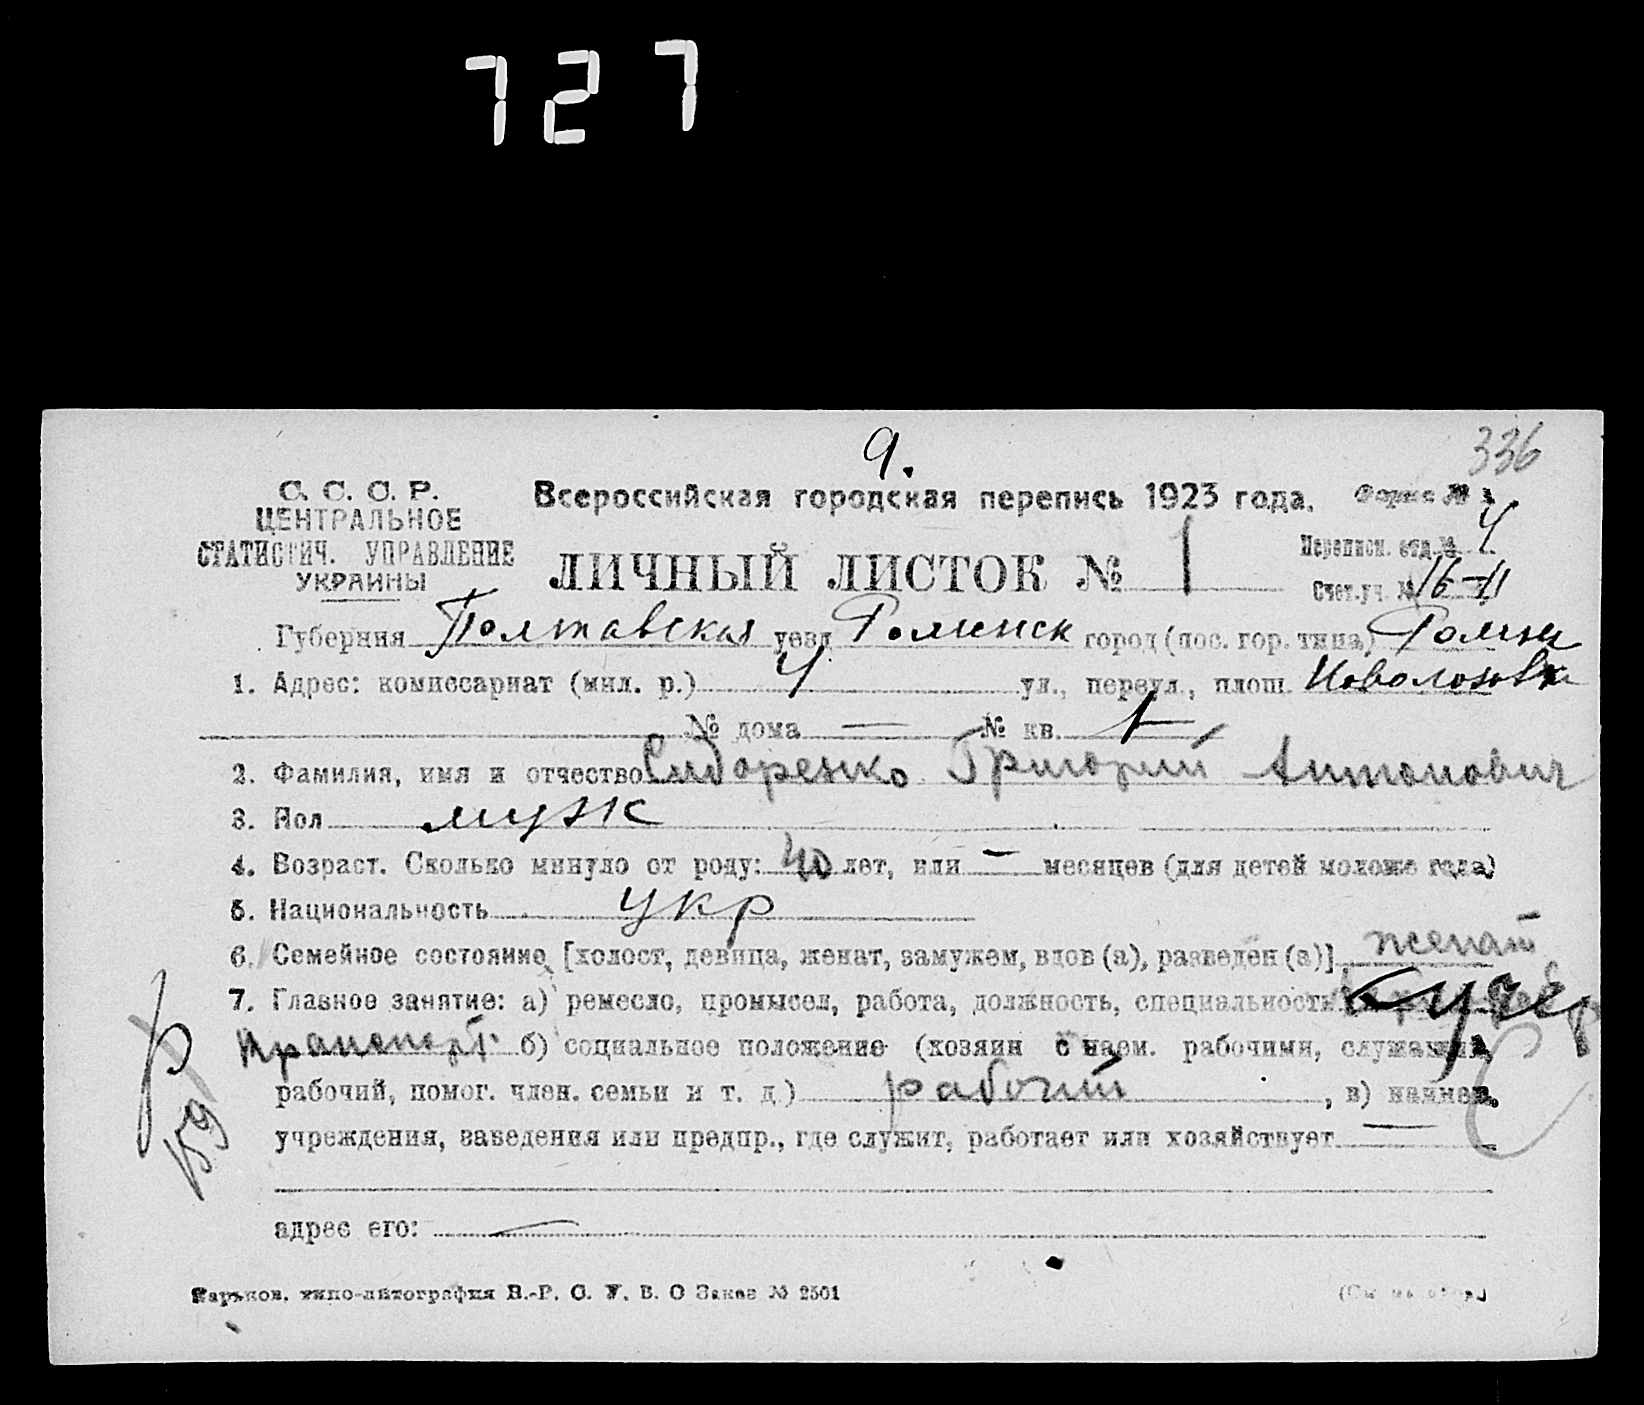 727
9.
336
С. С. С. Р.
ЦЕНТРАЛЬНОЕ
СТАТИСТИЧ. УПРАВЛЕНИЕ
УКРАИНЫ
Всероссийская городская перепись 1923 года.
Форма №
ЛИЧНЫЙ ЛИСТОК № 1
Переписн. отд. № 4
Счет. уч. № 16-11
Губерния Полтавская уезд Роменск город (пос. гор. типа) Ромны
1. Адрес: комиссариат (мил. р.) 4 ул., переул., площ.
№ дома — № кв. 1
2. Фамилия, имя и отчество Сидоренко Григорий Антонович
3. Пол муж
4. Возраст. Сколько минуло от роду: 40 лет, или — месяцев (для детей моложе года)
5. Национальность укр
6. Семейное состояние [холост, девица, женат, замужем, вдов (а), разведен (а)] женат
7. Главное занятие: а) ремесло, промысел, работа, должность, специальность кучер
транспорт б) социальное положение (хозяин с наем. рабочими, служащий,
рабочий, помог. член. семьи и т. д.) рабочий , в) наимен.
учреждения, заведения или предпр., где служит, работает или хозяйствует —
адрес его: —
159
Харьков. типо-литография В.-Р. С. У. В. О Заказ № 2501